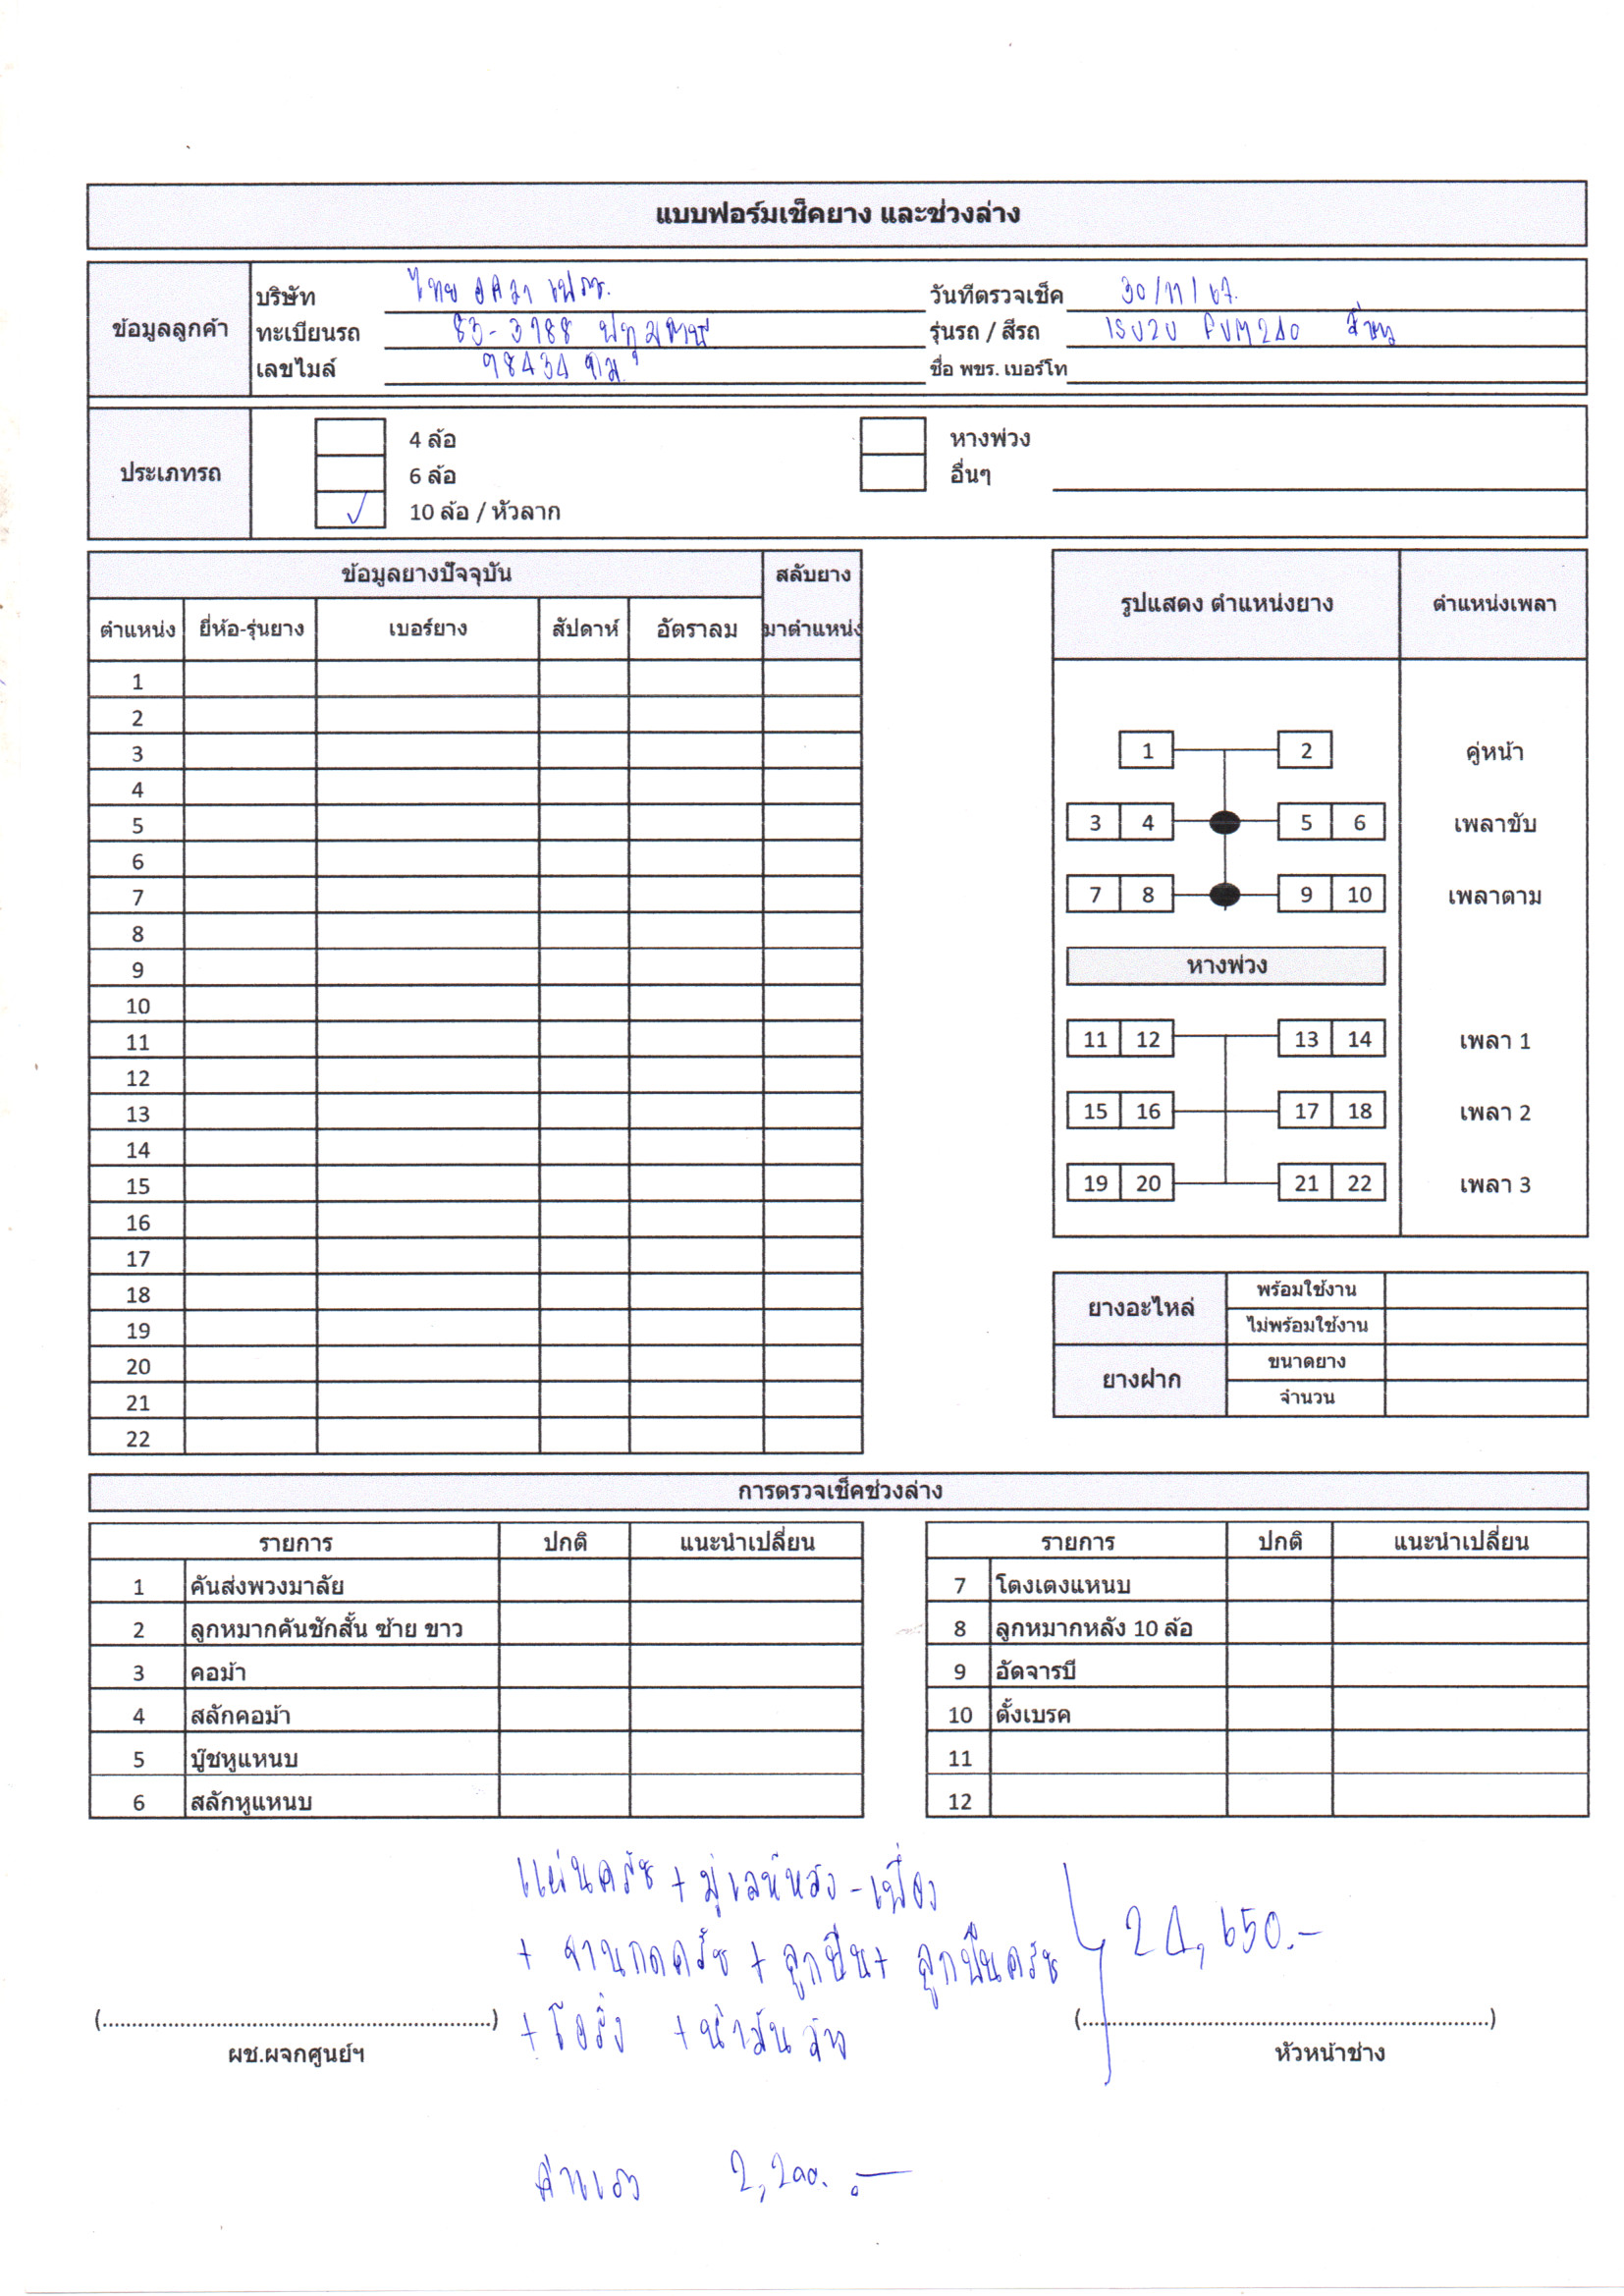 แบบฟอร์มเช็คยาง และช่วงล่าง
ข้อมูลลูกค้า
บริษัท ไทย อควา
วันที่ตรวจเช็ค 30/11/67.
ทะเบียนรถ 83-3788 ปทุมธานี
รุ่นรถ / สีรถ ISUZU FVM240
เลขไมล์ 98434 กม.
ชื่อ พขร. เบอร์โท
ประเภทรถ
4 ล้อ
หางพ่วง
6 ล้อ
อื่นๆ
✓ 10 ล้อ / หัวลาก
ข้อมูลยางปัจจุบัน สลับยาง
ตำแหน่ง ยี่ห้อ-รุ่นยาง เบอร์ยาง สัปดาห์ อัตราลม มาตำแหน่ง
1
2
3
4
5
6
7
8
9
10
11
12
13
14
15
16
17
18
19
20
21
22
รูปแสดง ตำแหน่งยาง ตำแหน่งเพลา
1 2 คู่หน้า
3 4 5 6 เพลาขับ
7 8 9 10 เพลาตาม
หางพ่วง
11 12 13 14 เพลา 1
15 16 17 18 เพลา 2
19 20 21 22 เพลา 3
ยางอะไหล่ พร้อมใช้งาน
ไม่พร้อมใช้งาน
ยางฝาก ขนาดยาง
จำนวน
การตรวจเช็คช่วงล่าง
รายการ ปกติ แนะนำเปลี่ยน
1 คันส่งพวงมาลัย
2 ลูกหมากคันชักสั้น ซ้าย ขาว
3 คอม้า
4 สลักคอม้า
5 บู๊ชหูแหนบ
6 สลักหูแหนบ
รายการ ปกติ แนะนำเปลี่ยน
7 โตงเตงแหนบ
8 ลูกหมากหลัง 10 ล้อ
9 อัดจารบี
10 ตั้งเบรค
11
12
แผ่นครัช + มู่เลย์หลัง - เฟือง
+ จานกดครัช + ลูกปืน + ลูกปืนครัช
24,650.-
+ โอริ่ง + น้ำมันล้าง
(......................................................................)
ผช.ผจกศูนย์ฯ
(......................................................................)
หัวหน้าช่าง
ค่าแรง 2,200.-